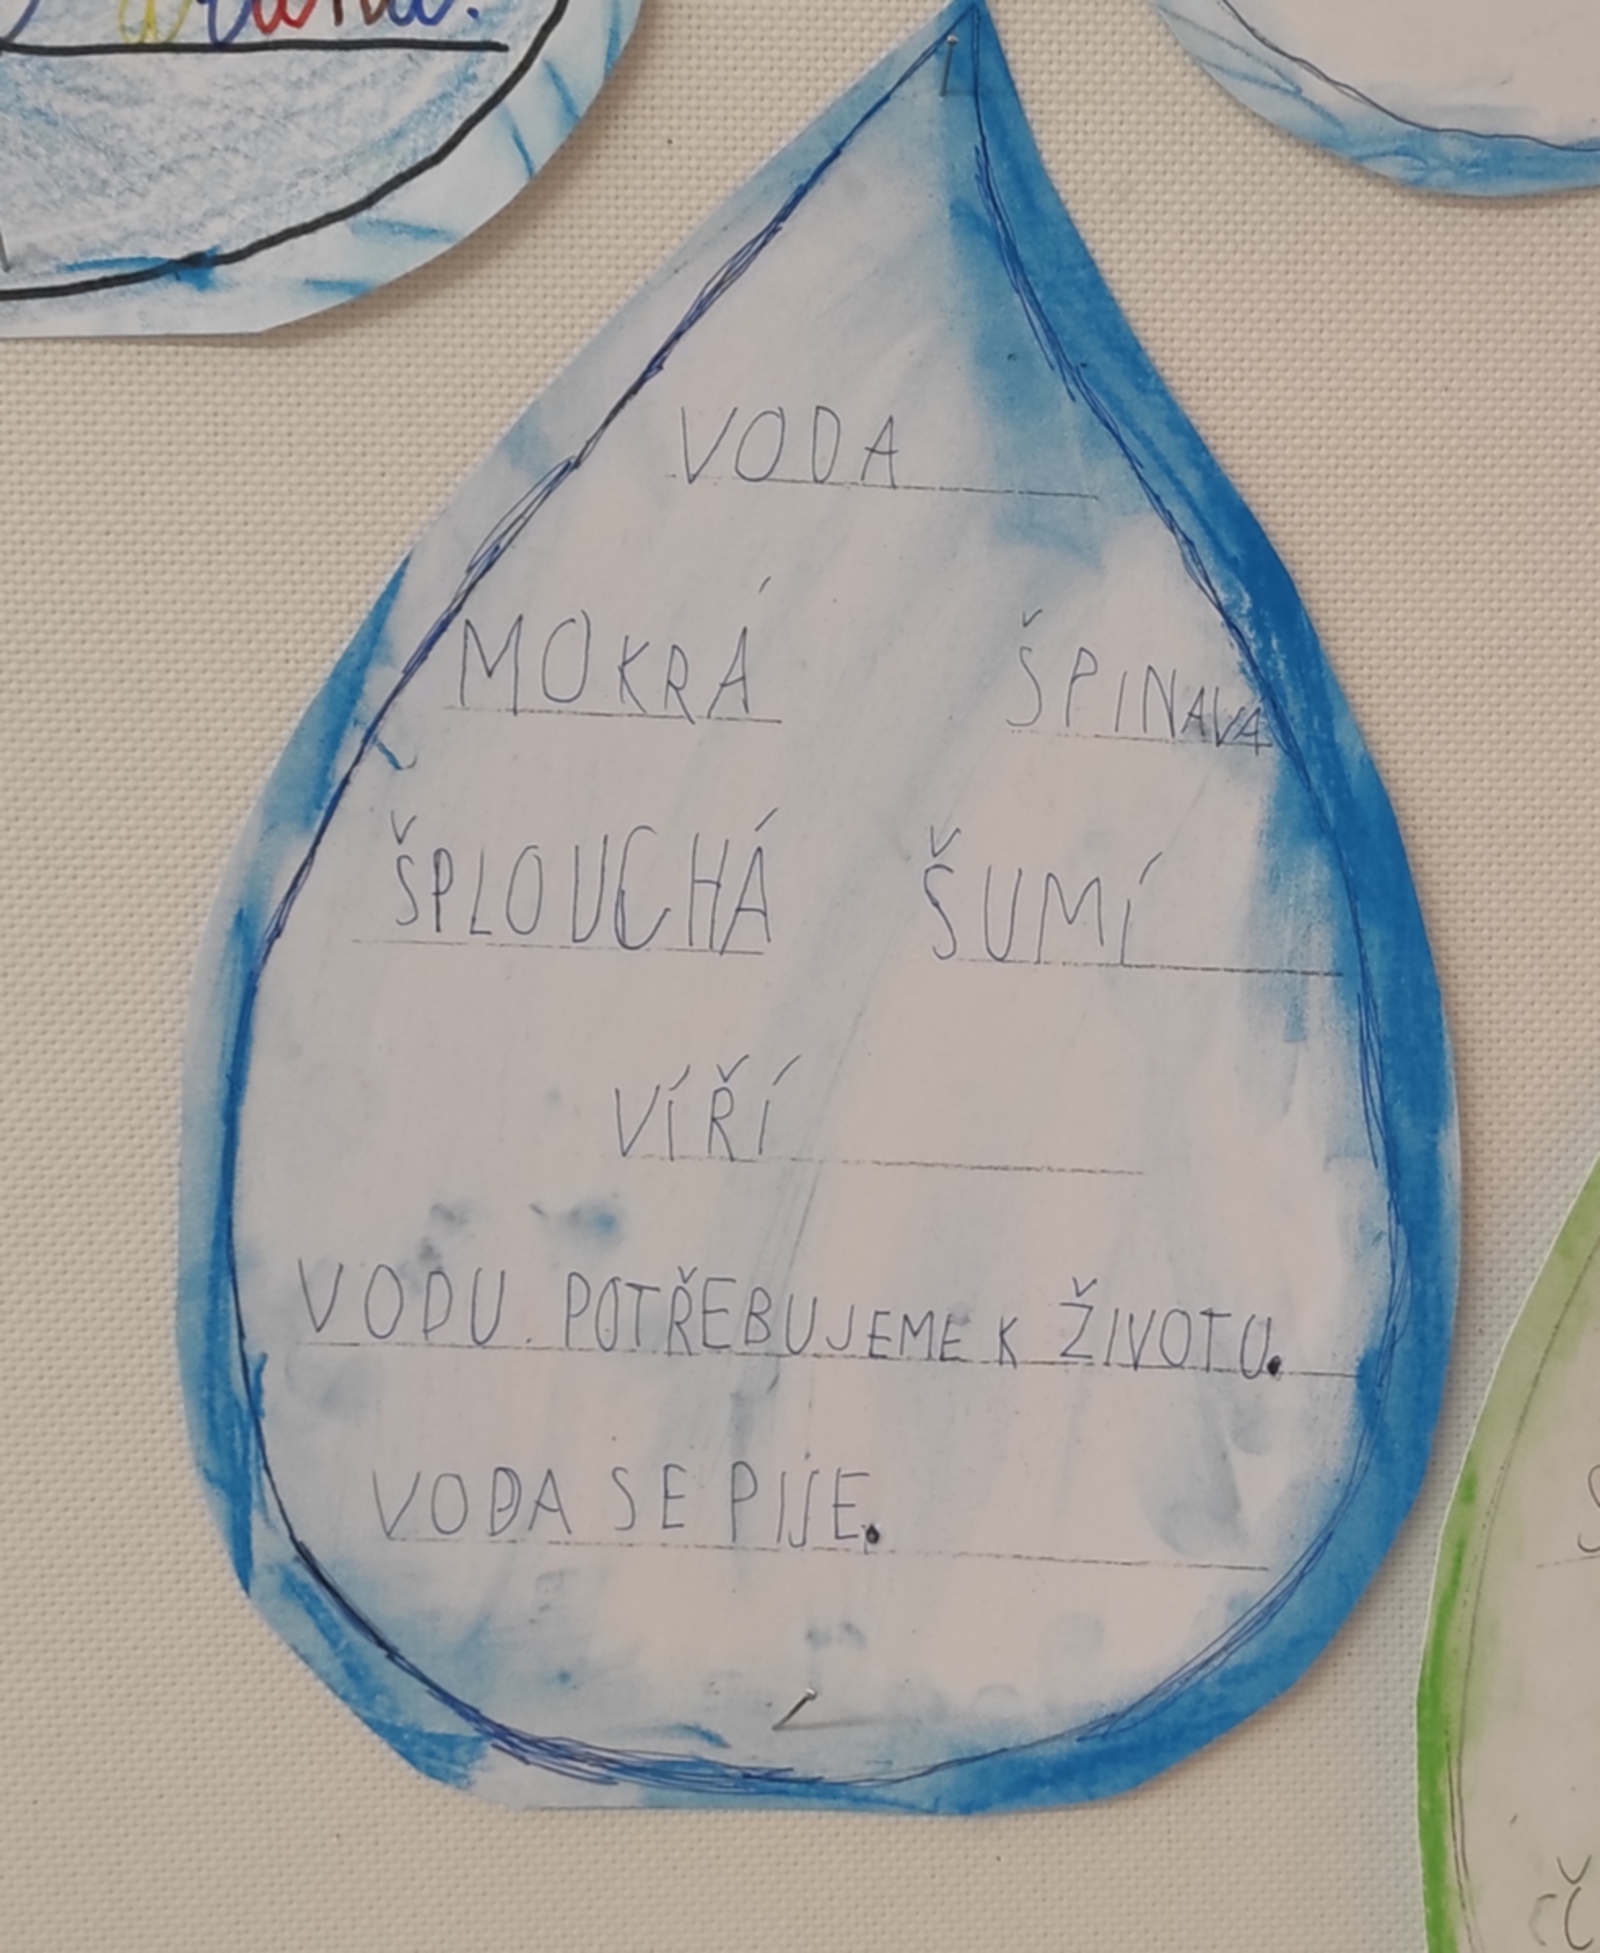 VODA
MOKRÁ ŠPINAVA
ŠPLOUCHÁ ŠUMÍ
VÍŘÍ
VODU POTŘEBUJEME K ŽIVOTU.
VODA SE PIJE.